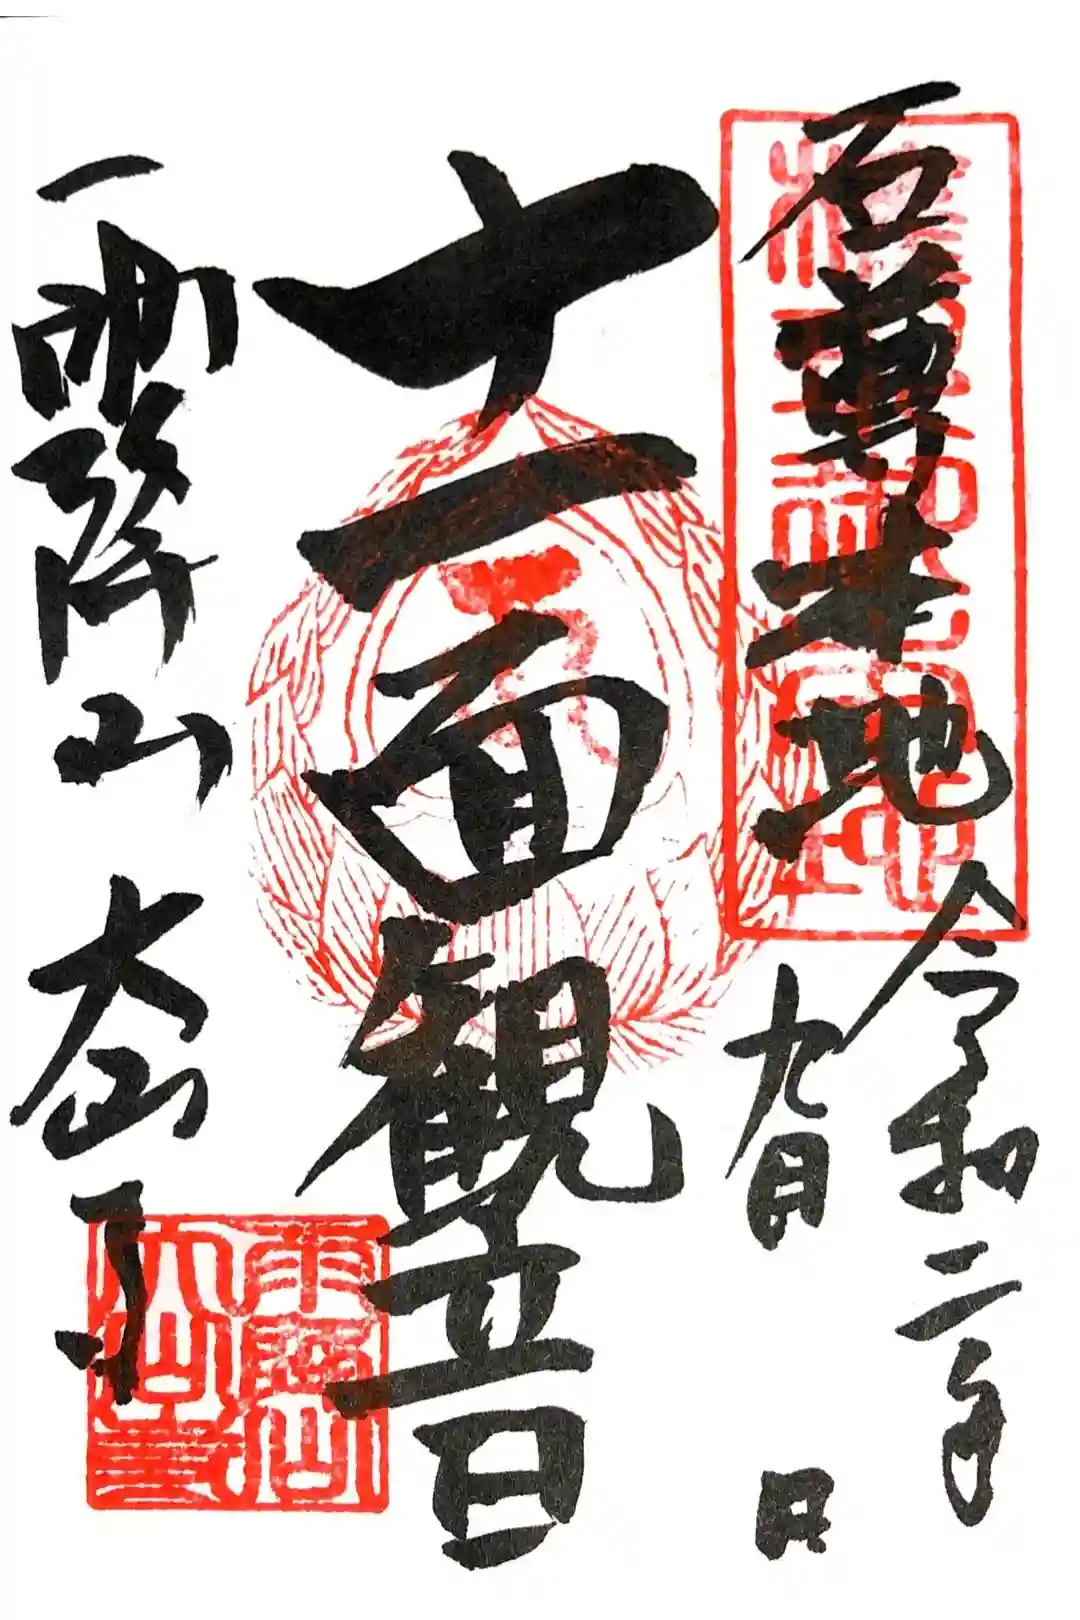 石尊本地
令和二年
九月 日
十一面観音
雨降山 大山寺
雨降山
大山寺